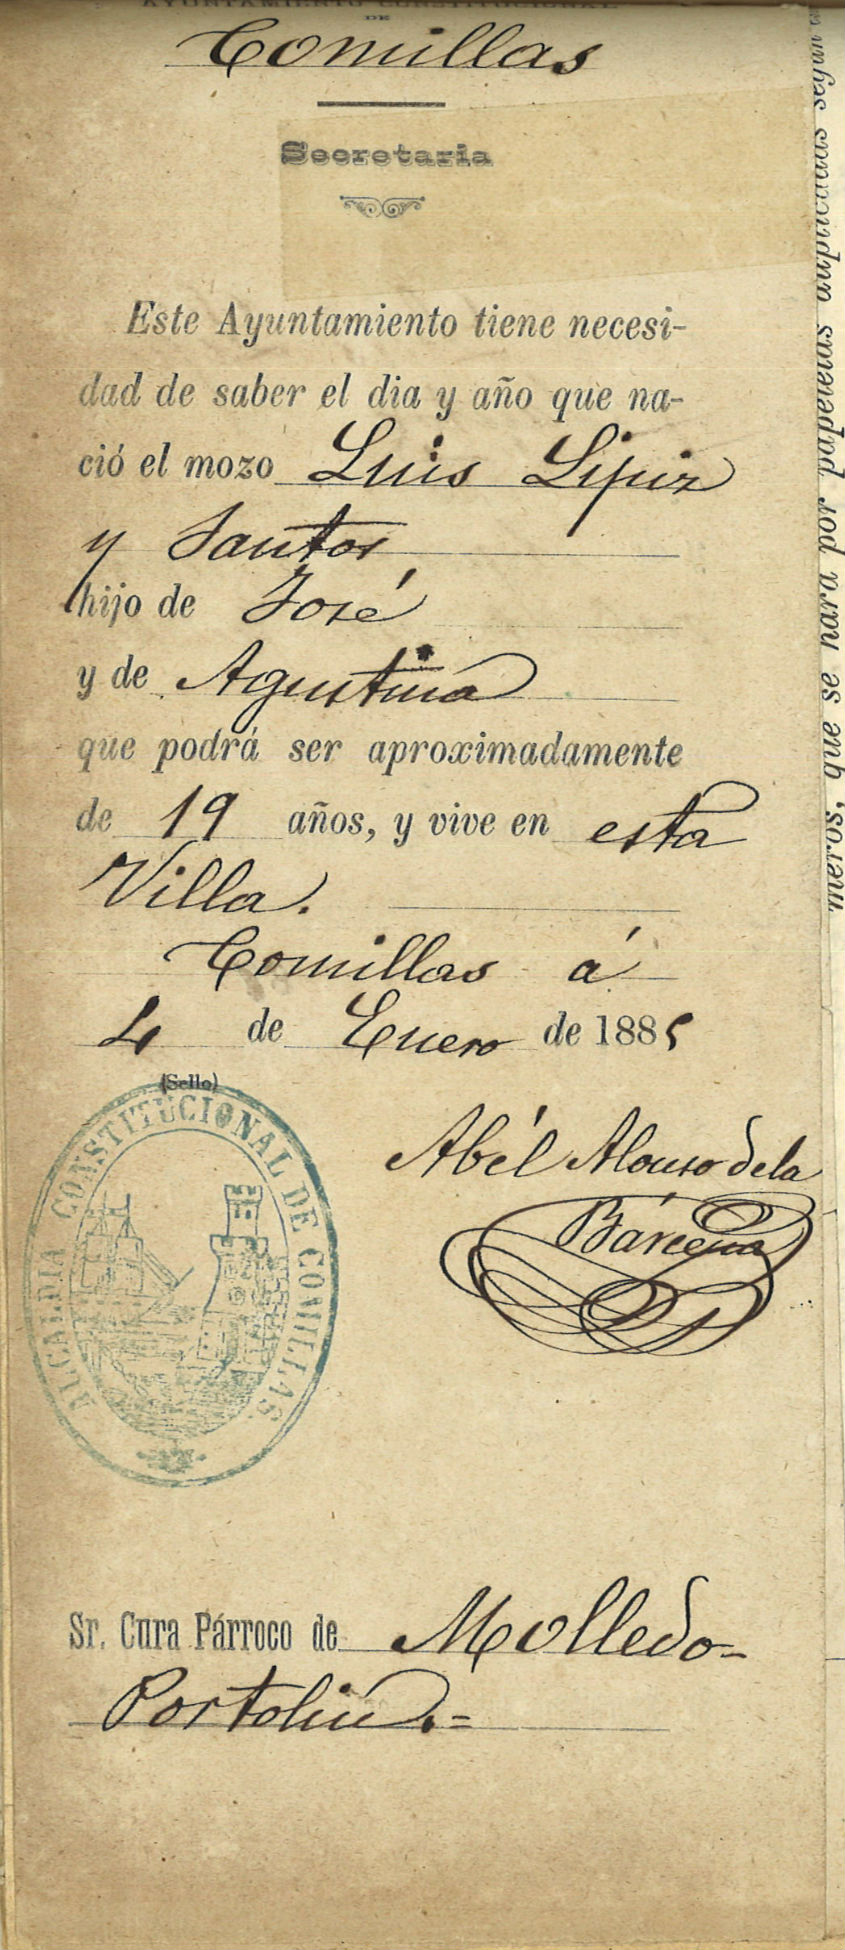 AYUNTAMIENTO CONSTITUCIONAL
DE
Comillas
Secretaria
Este Ayuntamiento tiene necesi-
dad de saber el dia y año que na-
ció el mozo Luis Lipiz
y Santos
hijo de José
y de Agustina
que podrá ser aproximadamente
de 19 años, y vive en esta
Villa.
Comillas á
4 de Enero de 1885
(Sello)
ALCALDIA CONSTITUCIONAL DE COMILLAS
Abél Alonso de la
Bárcena
Sr. Cura Párroco de Molledo-
Portolin.=
meros, que se hara por papeletas duplicadas segun